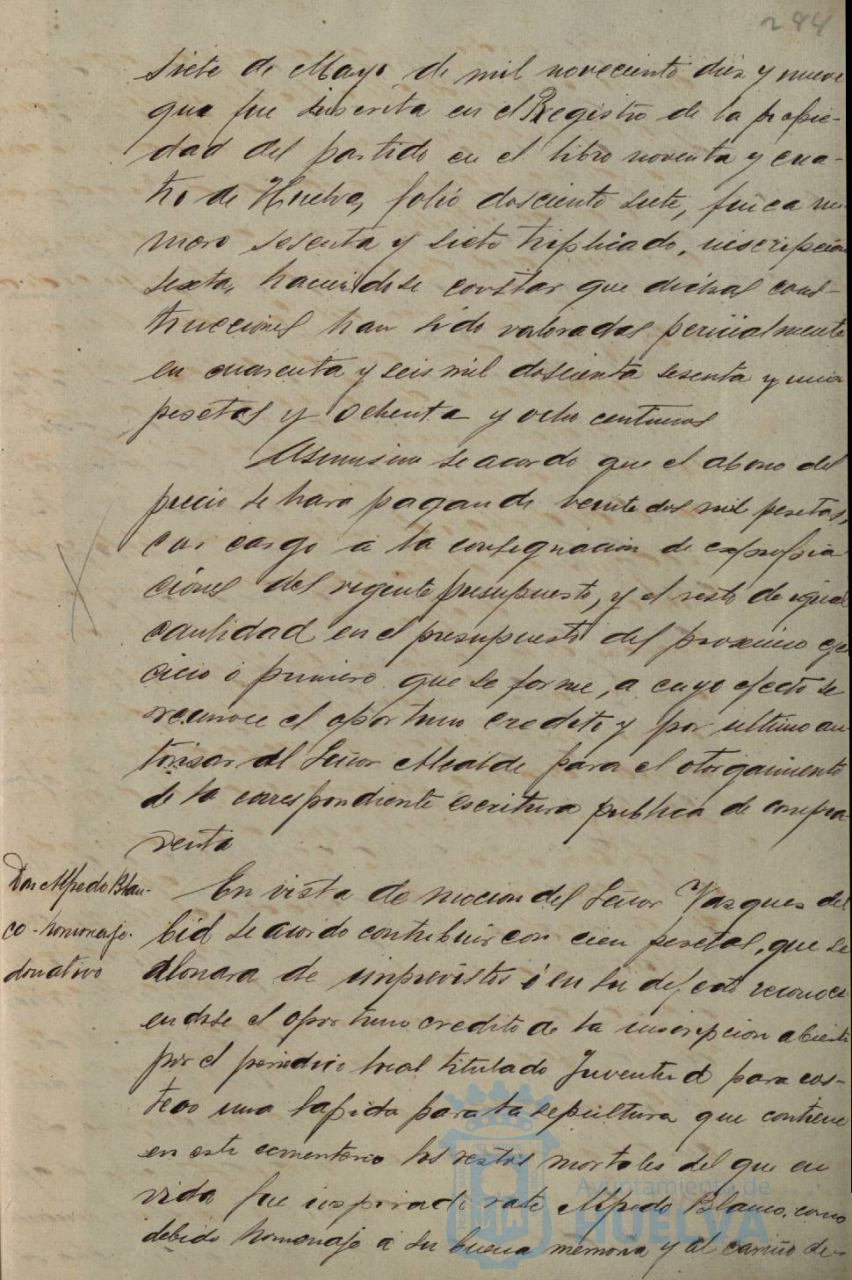 284
siete de Mayo de mil novecientos diez y nueve
que fue inscrita en el Registro de la propie-
dad del partido en el libro noventa y cua-
tro de Huelva, folio doscientos siete, finca nu-
mero sesenta y siete triplicado, inscripcion
sexta, haciendose constar que dichas cons-
trucciones han sido valoradas pericialmente
en cuarenta y seis mil doscientas sesenta y una
pesetas y ochenta y ocho centimos
Asimismo se acordo que el abono del
precio se hara pagando veinte dos mil pesetas,
con cargo a la consignacion de expropia
ciones del vigente presupuesto, y el resto de igual
cantidad en el presupuesto del proximo eje
cicio o primero que se forme, a cuyo efecto se
reconoce el oportuno credito y por ultimo au
torisar al Señor Alcalde para el otorgamiento
de la correspondiente escritura publica de compra
venta
Don Alfredo Blan-
co - homenaje -
donativo
En vista de mocion del Señor Vazquez del
Cid se acordo contribuir con cien pesetas, que se
abonara de imprevistos o en su defecto reconoci
endose el oportuno credito de la inscripcion abierta
por el periodico local titulado Juventud para cos-
tear una lapida para la sepultura que contiene
en este cementerio los restos mortales del que en
vida fue inspirado vate Alfredo Blanco, como
debido homenaje a su buena memoria y al cariño de-
Ayuntamiento de
HUELVA